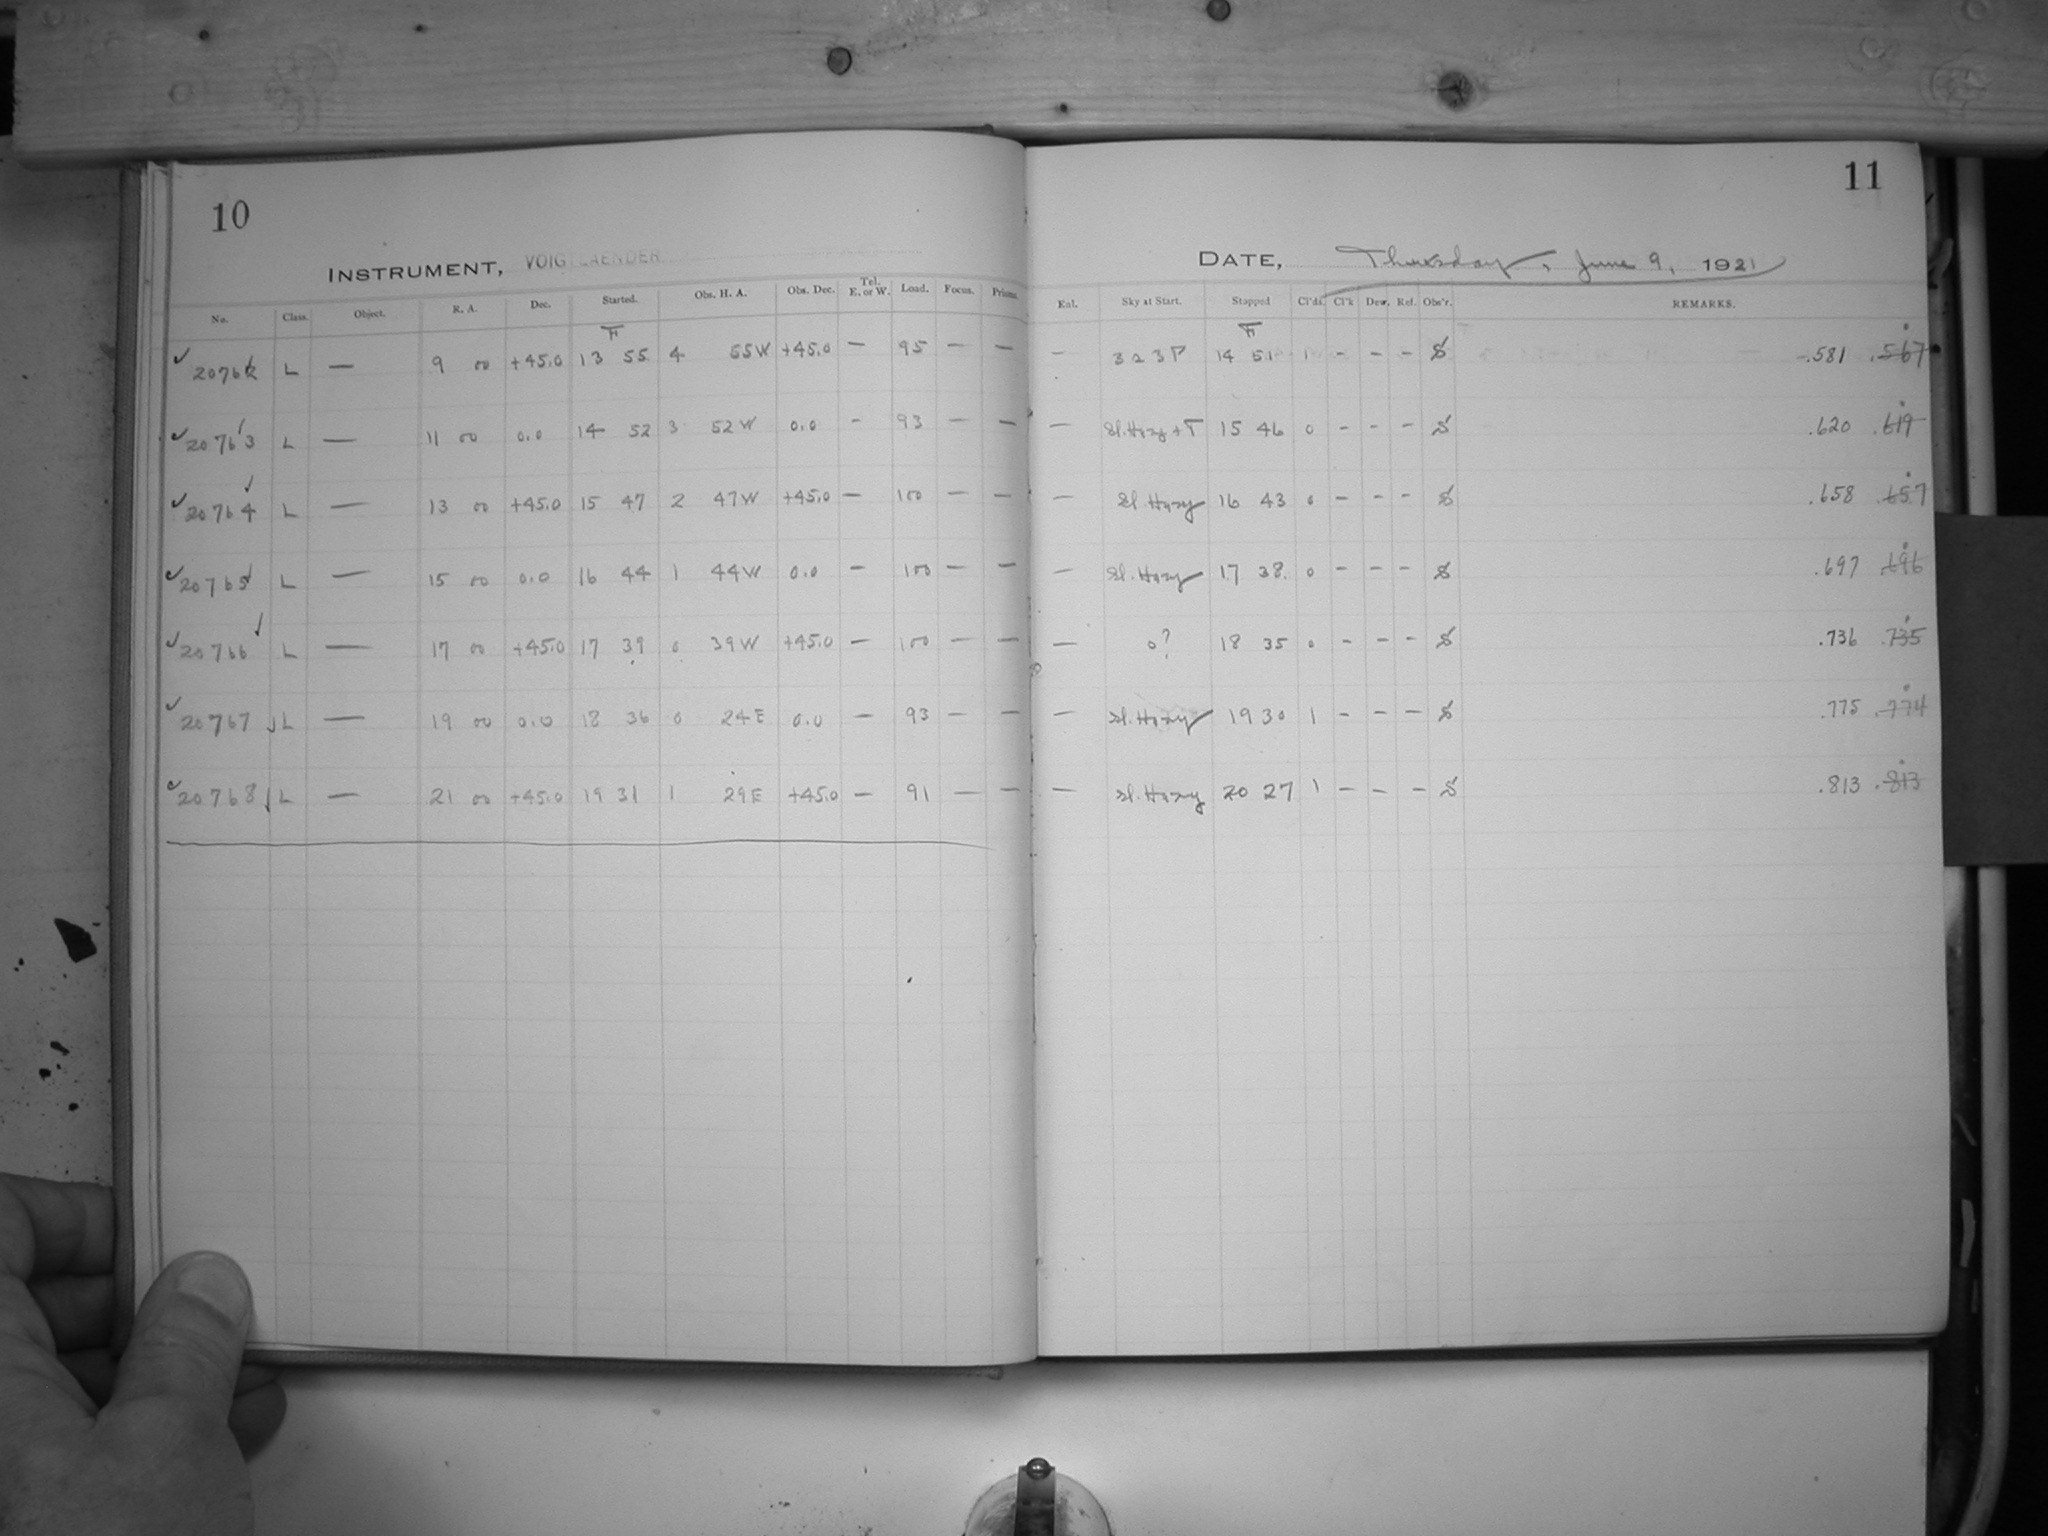 10
INSTRUMENT, VOIGTLAENDER
No. Class. Object. R. A. Dec. Started. Obs. H. A. Obs. Dec. Tel. E. or W. Load. Focus. Prisms.
F
20762 L — 9 00 +45.0 13 55 4 55W +45.0 — 95 — —
20763 L — 11 00 0.0 14 52 3 52W 0.0 - 93 — —
20764 L — 13 00 +45.0 15 47 2 47W +45.0 — 100 — —
20765 L — 15 00 0.0 16 44 1 44W 0.0 — 100 — —
20766 L — 17 00 +45.0 17 39 0 39W +45.0 — 100 — —
20767 L — 19 00 0.0 18 36 0 24E 0.0 — 93 — —
20768 L — 21 00 +45.0 19 31 1 29E +45.0 — 91 — —
11
DATE, Thursday, June 9, 1921
Enl. Sky at Start. Stopped Cl'ds. Cl'k Dew. Ref. Obs'r. REMARKS.
F
— 323P 14 51 1 - - - S .581 .567
— Sl. Hazy + T 15 46 0 - - - S .620 .619
— Sl. Hazy 16 43 0 - - - S .658 .657
— Sl. Hazy 17 38 0 - - - S .697 .696
— 0? 18 35 0 - - - S .736 .735
— Sl. Hazy 19 30 1 - - - S .775 .774
— Sl. Hazy 20 27 1 - - - S .813 .813